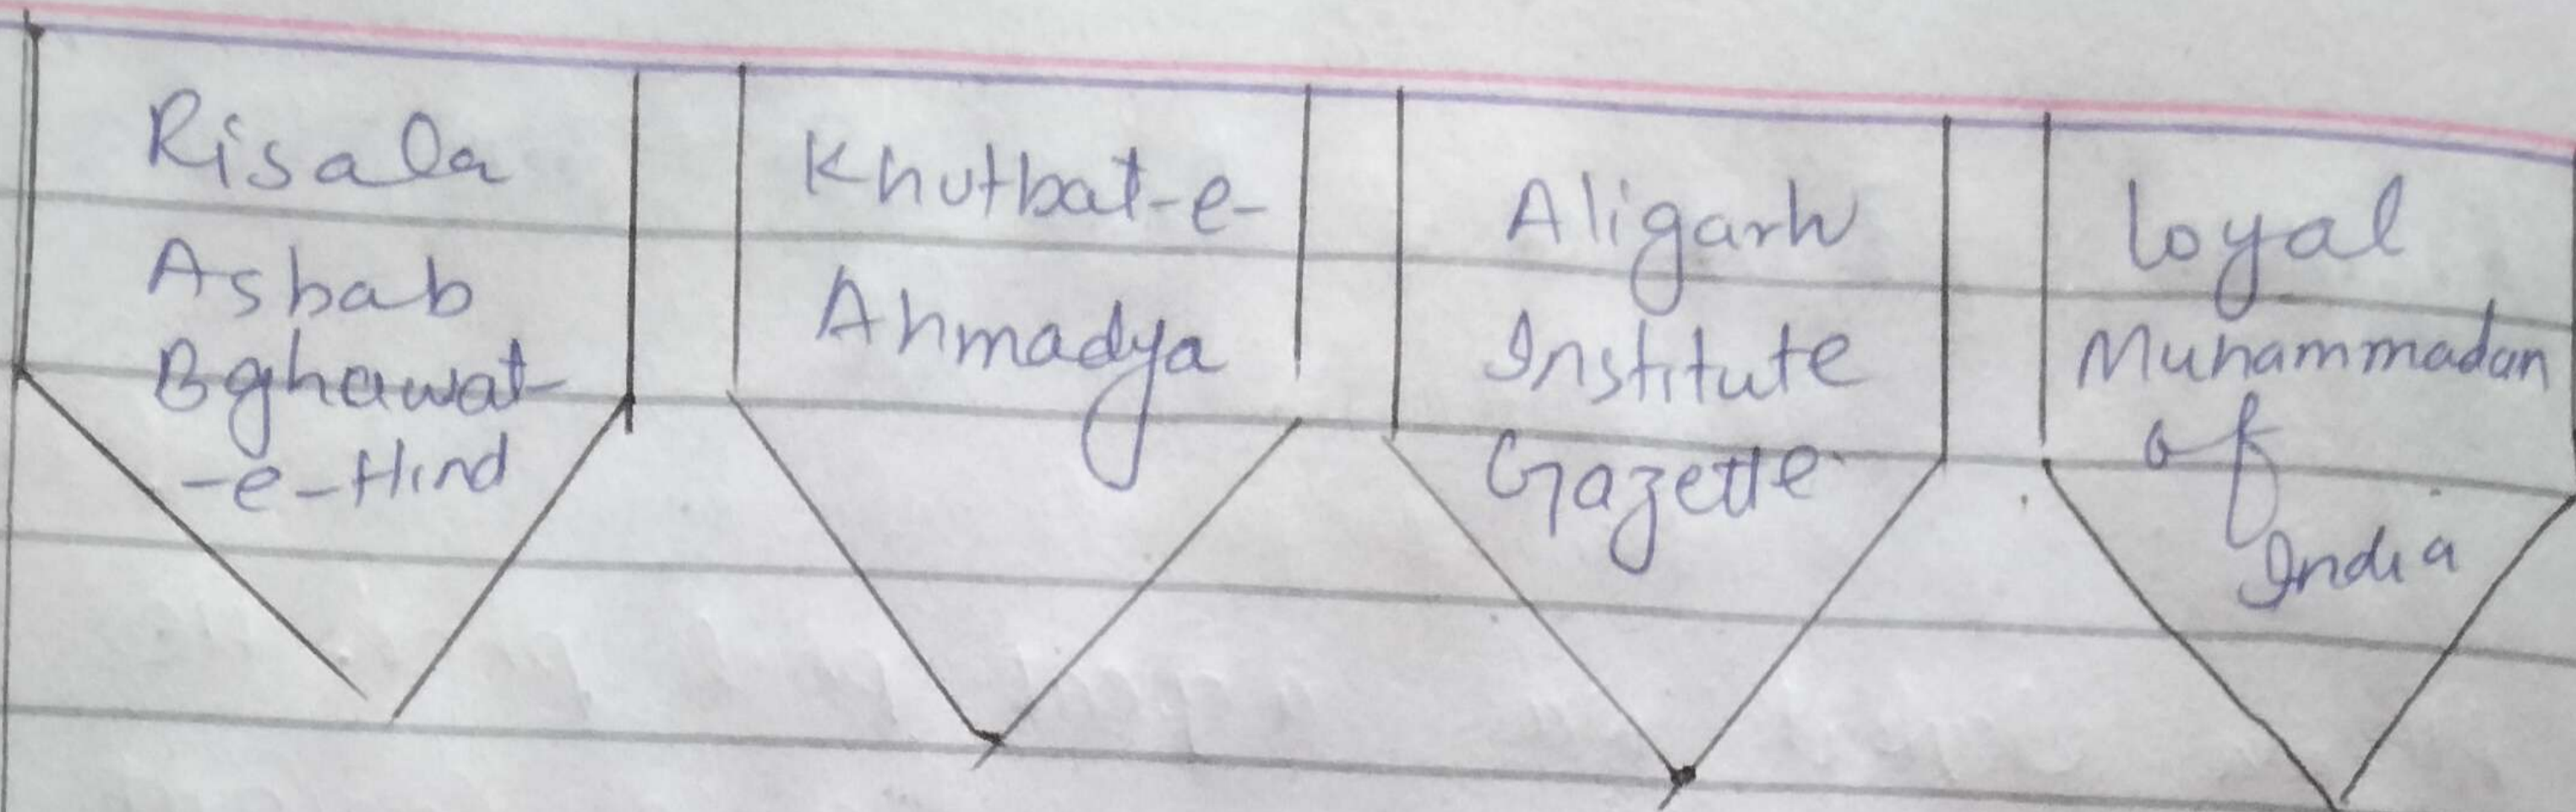 Risala
Asbab
Bghawat-
-e-Hind
Khutbat-e-
Ahmadya
Aligarh
Institute
Gazette
loyal
Muhammadan
of
India